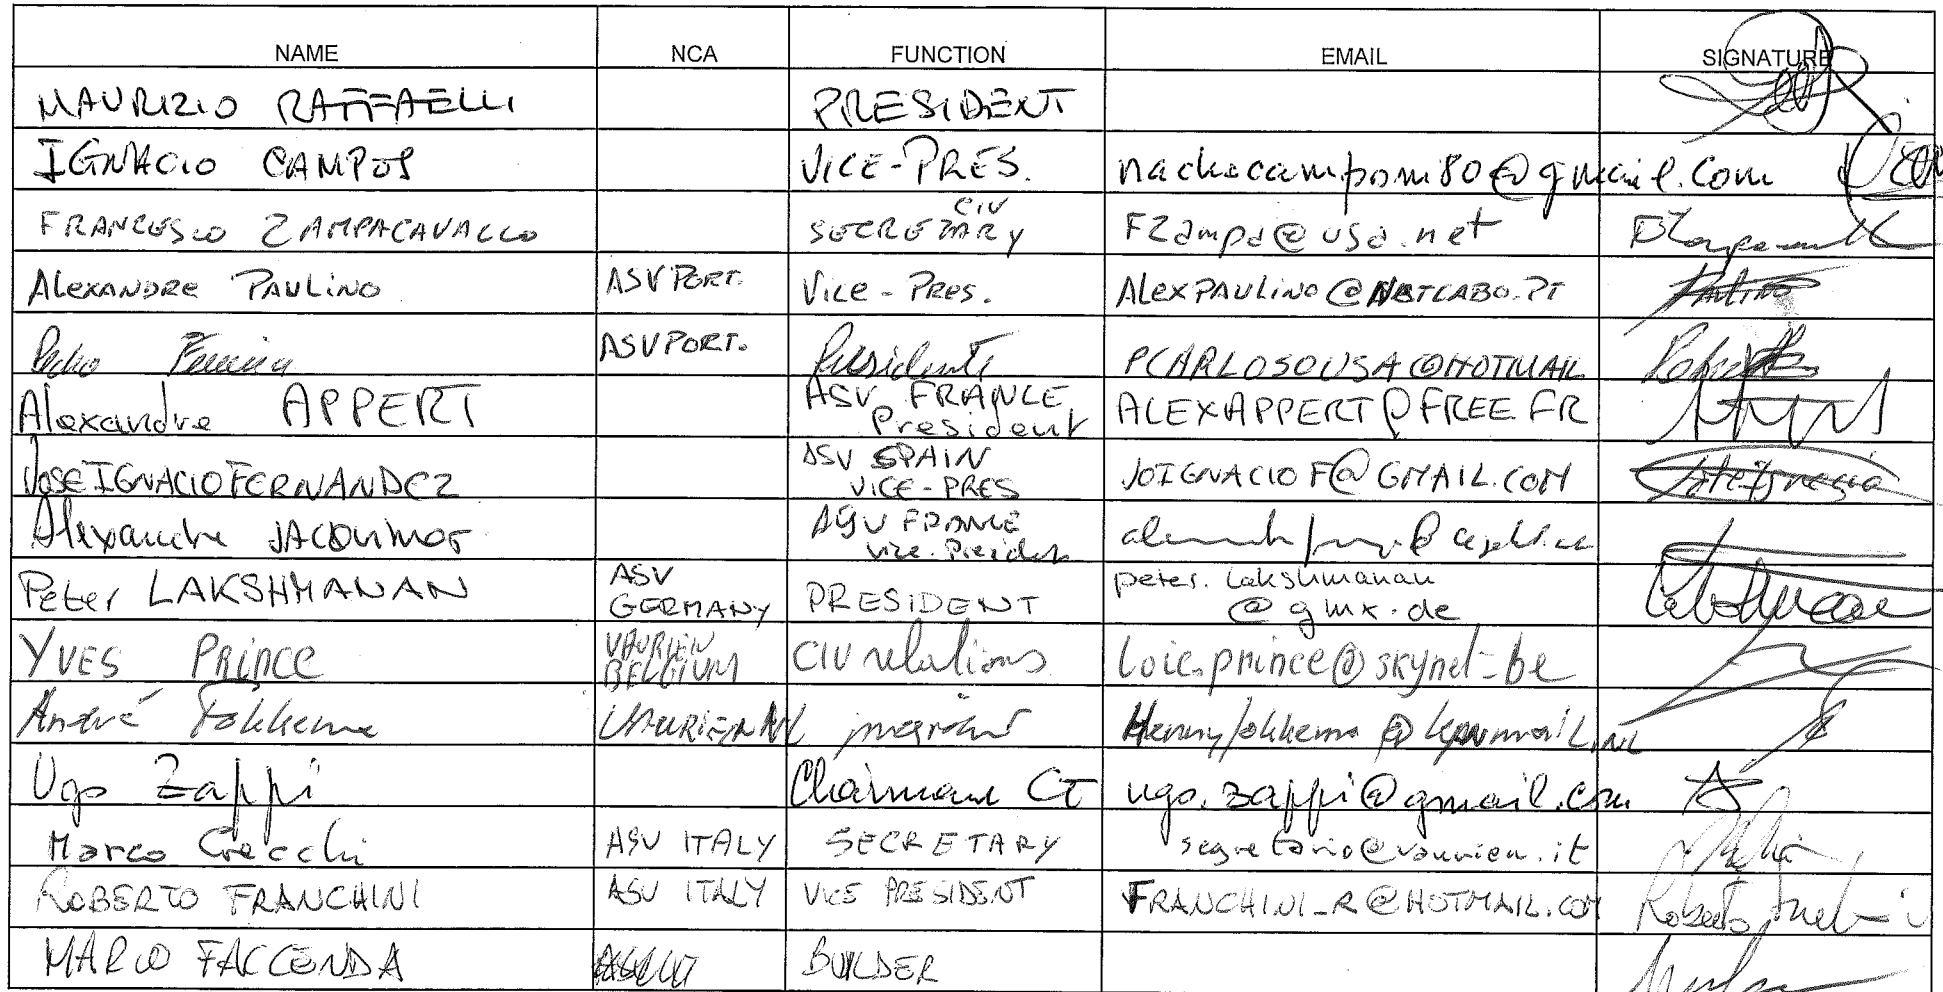 NAME NCA FUNCTION EMAIL SIGNATURE
MAURIZIO RAFFAELLI PRESIDENT
IGNACIO CAMPOS VICE-PRES. nachocampom80@gmail.com
FRANCESCO ZAMPACAVALLO CIV SECRETARY FZampa@usa.net
ALEXANDRE PAULINO ASV PORT. VICE-PRES. ALEXPAULINO@NETCABO.PT Paulino
Pedro Ferreira ASV PORT. Presidente PCARLOSOUSA@HOTMAIL
Alexandre APPERT ASV FRANCE President ALEXAPPERT@FREE.FR
JOSE IGNACIO FERNANDEZ ASV SPAIN VICE-PRES JOIGNACIOF@GMAIL.COM
Alexandre JACQUIMOT ASV FRANCE vice-President
Peter LAKSHMANAN ASV GERMANY PRESIDENT peter.lakshmanan@gmx.de
YVES PRINCE VAURIEN BELGIUM CIV relations loic.prince@skynet.be
André Fokkema VAURIEN NL
Ugo Zappi Chairman CT ugo.zappi@gmail.com
Marco Crecchi ASV ITALY SECRETARY segretario@vaurien.it
ROBERTO FRANCHINI ASV ITALY VICE PRESIDENT FRANCHINI_R@HOTMAIL.COM Roberto
MARIO FACCENDA BUILDER